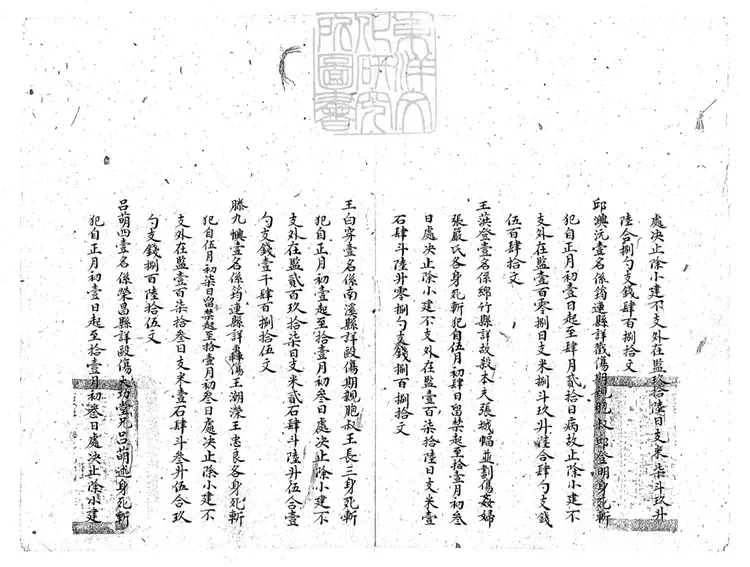 處决止除小建不支外在監玖拾陸日支米柒斗玖升
陸合捌勺支錢肆百捌拾文
邱興沅壹名係筠連縣詳戳傷期親胞叔邱登明身死斬
犯自正月初壹日起至肆月貳拾日病故止除小建不
支外在監壹百零捌日支米捌斗玖升陸合肆勺支錢
伍百肆拾文
王蓂登壹名係綿竹縣詳故殺本夫張城幅並劃傷姦婦
張嚴氏各身死斬犯自伍月初肆日留禁起至拾壹月初叁
日處决止除小建不支外在監壹百柒拾陸日支米壹
石肆斗陸升零捌勺支錢捌百捌拾文
王白字壹名係南溪縣詳毆傷期親胞叔王長三身死斬
犯自正月初壹起至拾壹月初叁日處决止除小建不
支外在監貳百玖拾柒日支米貳石肆斗陸升伍合壹
勺支錢壹千肆百捌拾伍文
滕九壹名係筠連縣詳轟傷王潮濚王忠良各身死斬
犯自伍月初柒日留禁起至拾壹月初叁日處决止除小建不
支外在監壹百柒拾叁日支米壹石肆斗叁升伍合玖
勺支錢捌百陸拾伍文
呂萌四壹名係榮昌縣詳毆傷大功堂兄呂萌述身死斬
犯自正月初壹日起至拾壹月初叁日處决止除小建
東洋文化研究所圖書